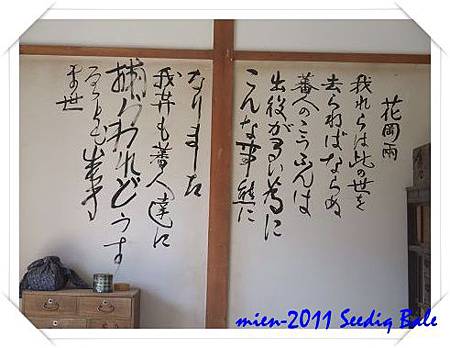 花岡兩
我れらは此の世を
去らねばならぬ
蕃人のこうふんは
出役が多い為に
こんな事態に
なりました
我等も蕃人達に
捕らわれどうす
ることも出来
ま世
mien-2011 Seediq Bale